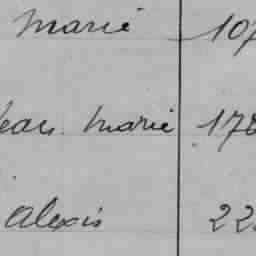 Marie 107
Jean Marie 178
Alexis 22